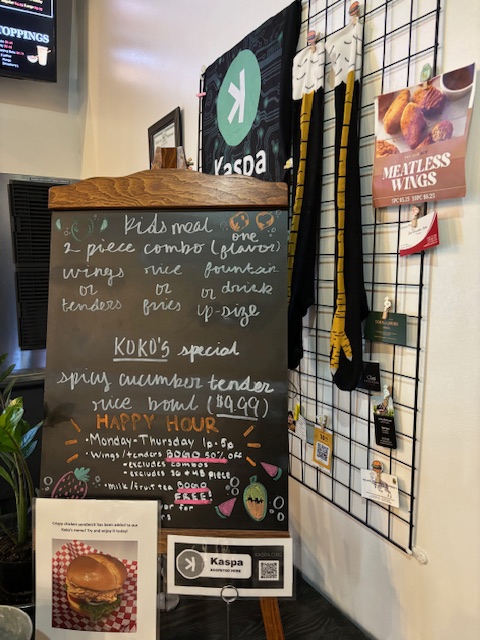 TOPPINGS
Kaspa
MEATLESS
WINGS
Kids meal
2 piece combo (one flavor)
wings rice fountain
or or or drink
tenders fries up-size
KOKO'S special
spicy cucumber tender
rice bowl ($9.99)
HAPPY HOUR
• Monday-Thursday 1p-5p
• Wings/tenders BOGO 50% off
• excludes combos
• excludes 36 & 48 piece
• Milk/fruit tea BOGO
FREE!
Crispy chicken sandwich has been added to our
Koko's menu! Try and enjoy it today!
Kaspa
ACCEPTED HERE
KASPA.ORG